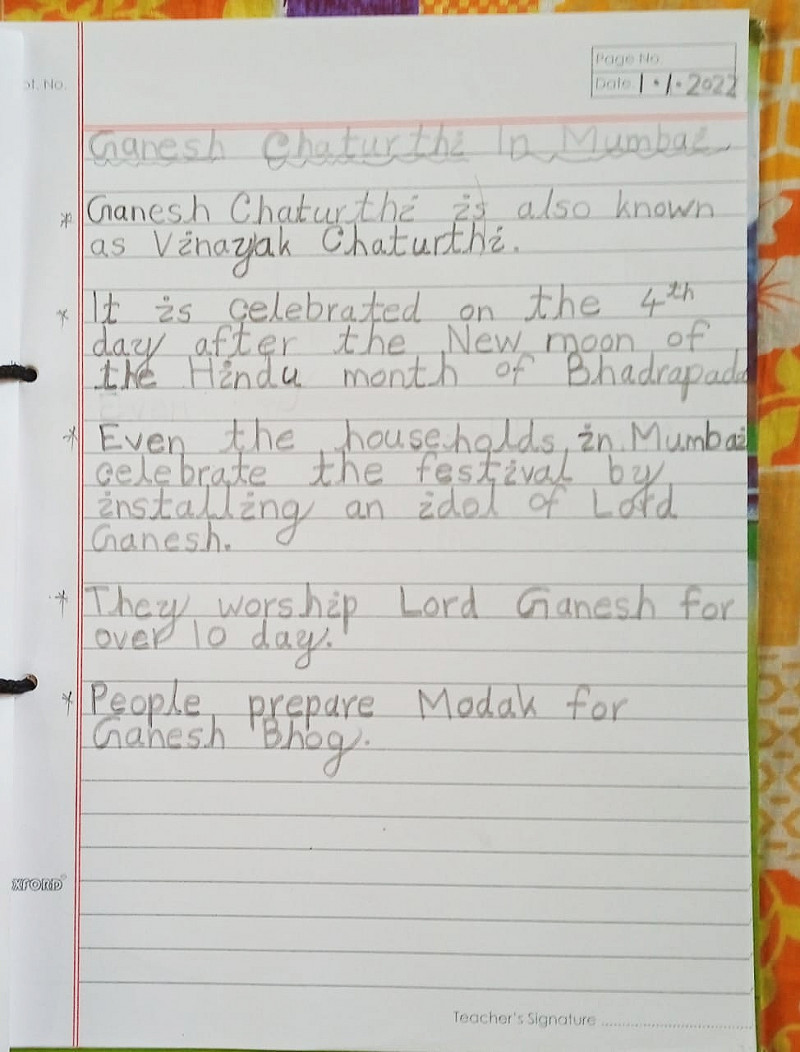 Page No.
Date 1.1.2022
Ganesh Chaturthi In Mumbai
* Ganesh Chaturthi is also known
as Vinayak Chaturthi.
* It is celebrated on the 4th
day after the New moon of
the Hindu month of Bhadrapada
* Even the households in Mumbai
celebrate the festival by
installing an idol of Lord
Ganesh.
* They worship Lord Ganesh for
over 10 day.
* People prepare Modak for
Ganesh Bhog.
Teacher's Signature